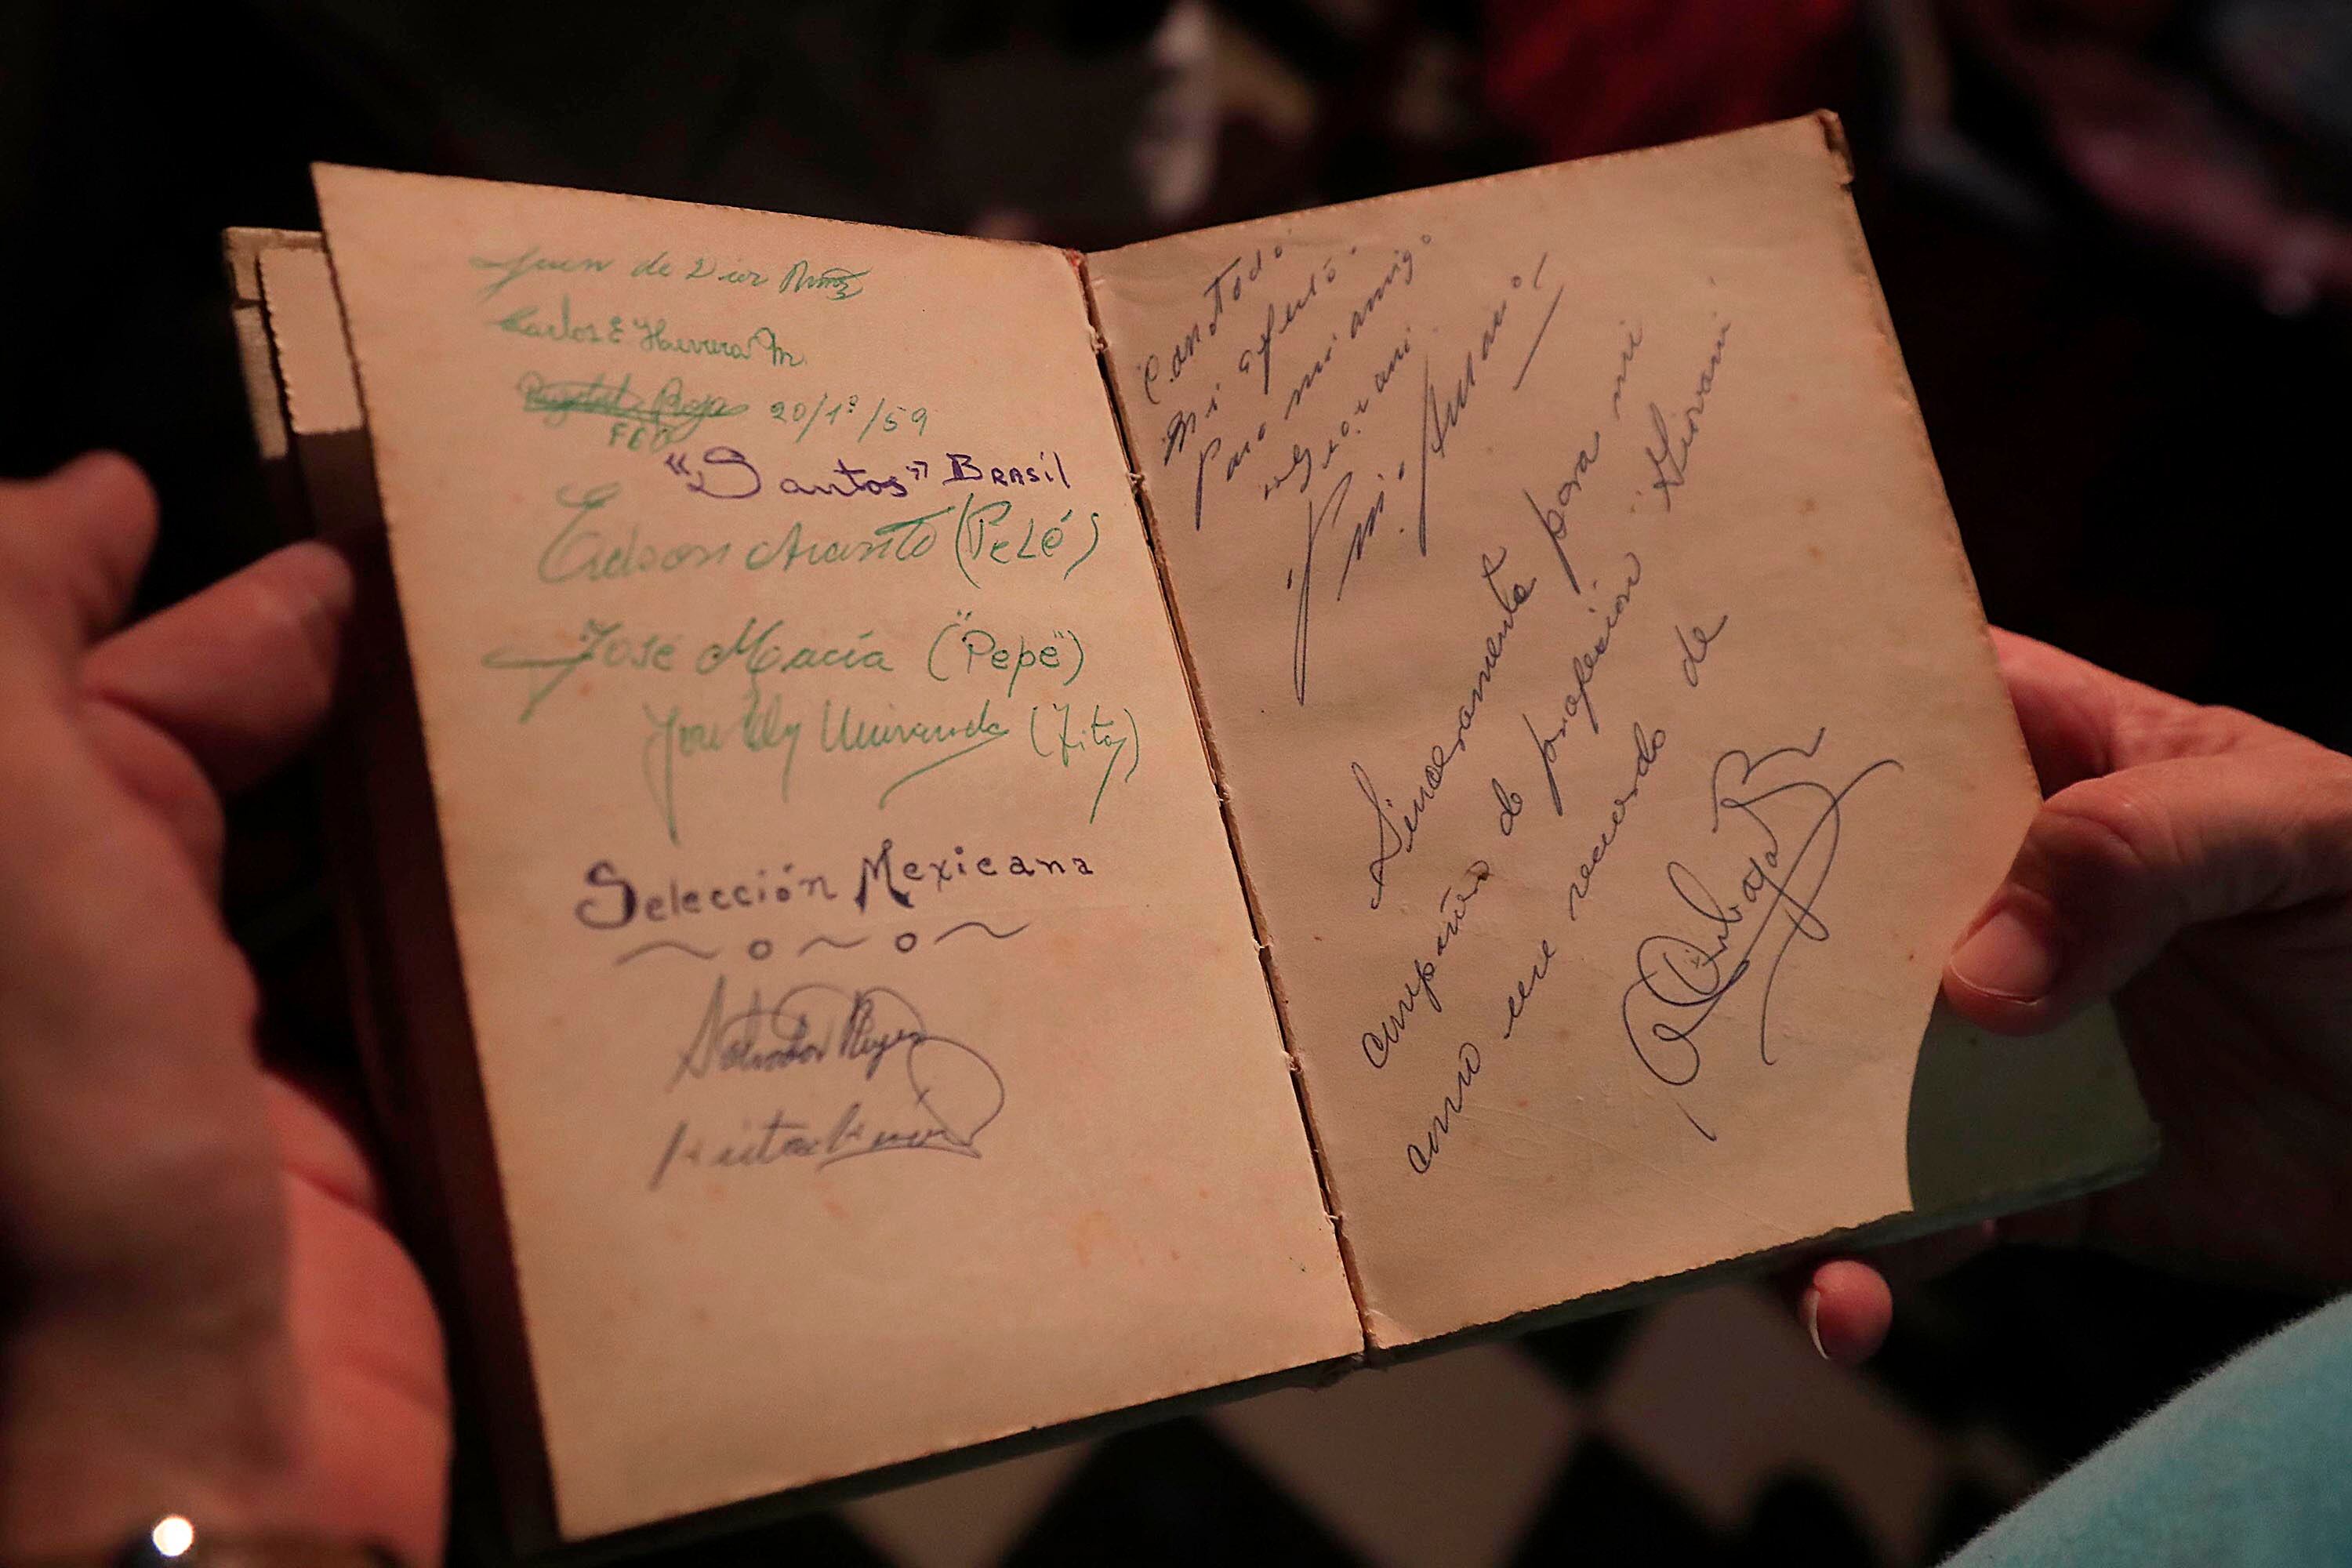 Juan de Dios Muñoz
Carlos E Herrera M.
Rojas 20/1º/59
"Santos" BRASiL
Edson Arantes (PeLé)
José Macía ("Pepe")
José Ely Miranda (Zito)
Selección Mexicana
Salvador Reyes
Con todo
Mi afecto
Para mi amigo
"Giovani"
Sinceramente para mi
compañero de profesion "Giovani"
como un recuerdo de